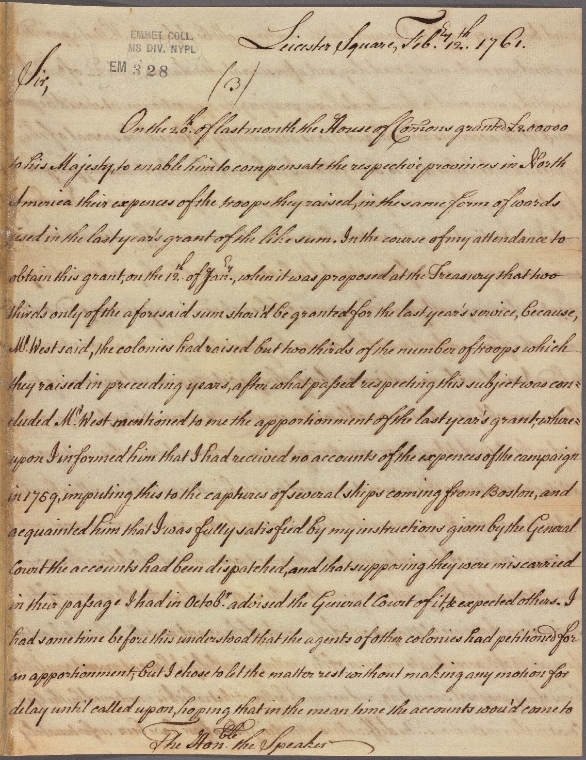 EMMET COLL.
MS DIV. NYPL
EM 328
Leicester Square, Feb.ry 12.th 1761.
(3)
Sir,
On the 20th. of last month the House of Comons granted £200000
to his Majesty, to enable him to compensate the respective provinces in North
America their expences of the troops they raised, in the same form of words
used in the last year's grant of the like sum. In the course of my attendance to
obtain this grant, on the 12.th of Jan.ry, when it was proposed at the Treasury that two
thirds only of the aforesaid sum shou'd be granted for the last year's service, because,
Mr. West said, the colonies had raised but two thirds of the number of troops which
they raised in preceding years, after what passed respecting this subject was con=
cluded Mr. West mentioned to me the apportionment of the last year's grant, where=
upon I informed him that I had received no accounts of the expences of the campaign
in 1759, imputing this to the captures of several ships coming from Boston, and
acquainted him that I was fully satisfied by my instructions given by the General
Court the accounts had been dispatched, and that supposing they were miscarried
in their passage I had in Octobr. advised the General Court of it, & expected others. I
had some time before this understood that the agents of other colonies had petitioned for
an apportionment, but I chose to let the matter rest without making any motion for
delay until called upon, hoping that in the mean time the accounts wou'd come to
The Honble. the Speaker